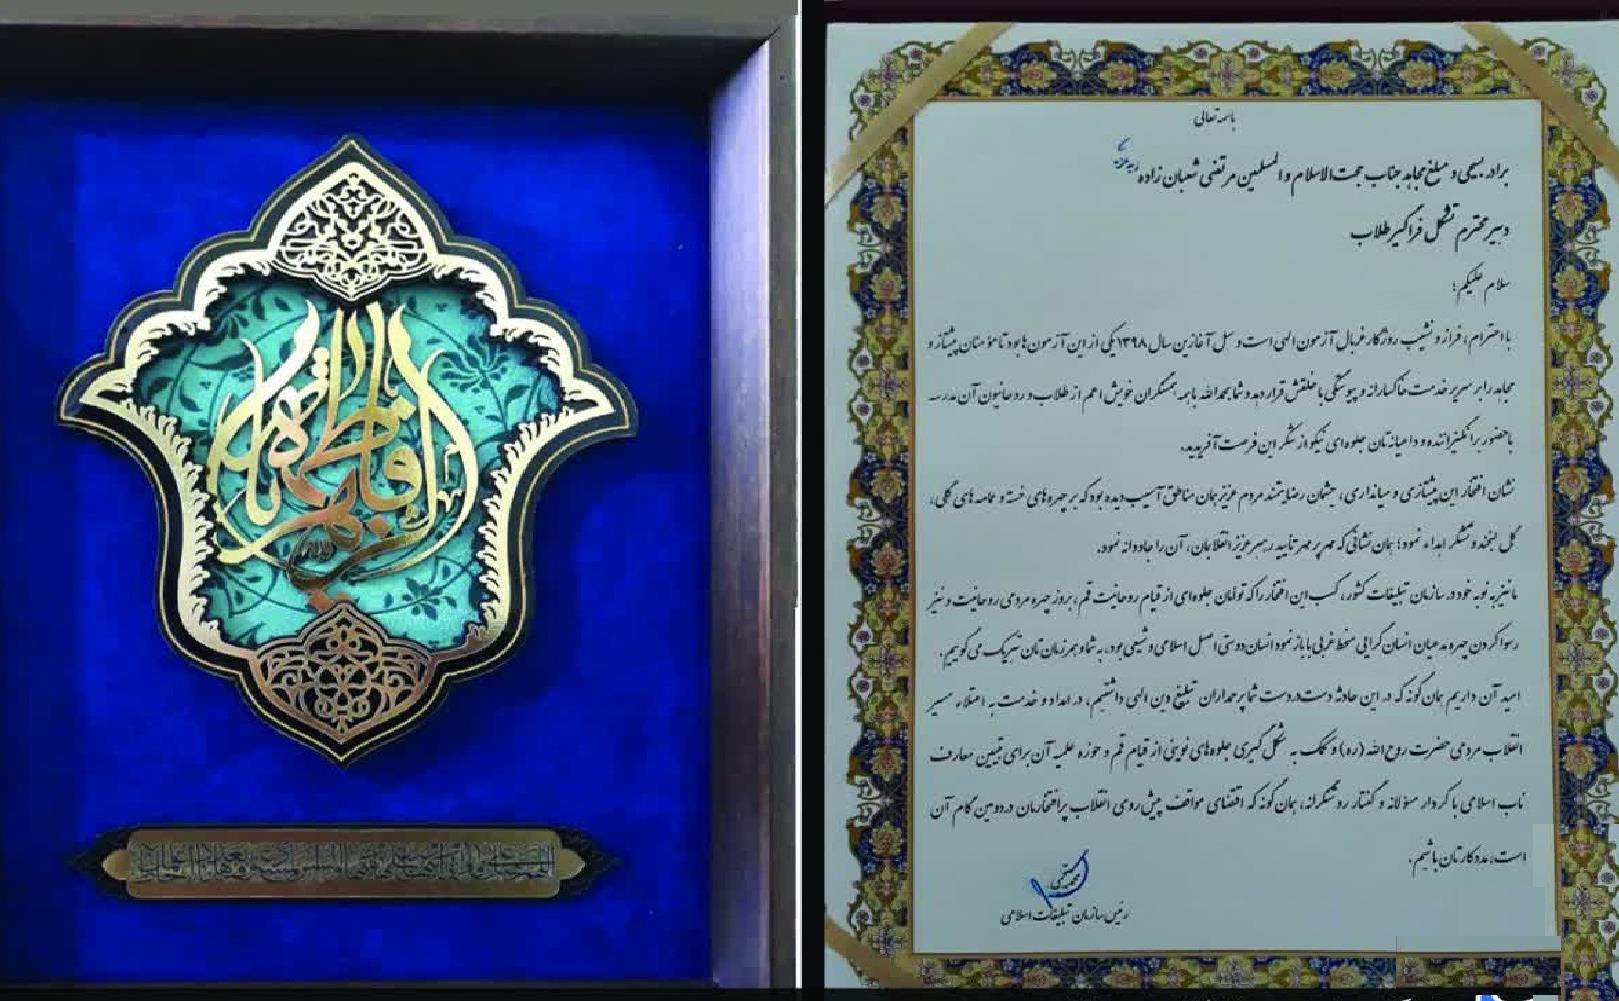 فاطمة الزهرا
باسمه تعالی
برادر بسیجی و مبلغ مجاهد جناب حجت الاسلام و المسلمین مرتضی شعبان زاده
دبیر محترم تشکل فراگیر طلاب
سلام علیکم؛
با احترام، فراز و نشیب روزگار غربال آزمون الهی است و سیل آغازین سال ۱۳۹۸ یکی از این آزمون ها بود تا مؤمنان پیشتاز و
مجاهد را بر سریر خدمت خاکسارانه و پیوستگی با خلقش قرار دهد و شما بحمدالله با همه همسنگران خویش اعم از طلاب و روحانیون آن مدرسه
با حضور برانگیزاننده و داعیانه تان جلوه ای نیکو از شکر این فرصت آفریدید.
نشان افتخار این پیشتازی و میانداری، چشمان رضایتمند مردم عزیزمان مناطق آسیب دیده بود که بر چهره های خسته و عمامه های گلی،
گل لبخند و تشکر اهداء نمود؛ همان نشانی که مهر بر مهر تایید رهبر عزیز انقلابمان، آن را جاودانه نمود.
ما نیز به نوبه خود در سازمان تبلیغات کشور، کسب این افتخار را که توأمان جلوه ای از قیام روحانیت قم، بروز چهره مردمی روحانیت و نیز
رسوا کردن چهره مدعیان انسان گرایی منحط غربی با باز نمود انسان دوستی اصیل اسلامی و شیعی بود، به شما و همرزمان تان تبریک می گوییم.
امید آن داریم همان گونه که در این حادثه دست در دست شما پرچمداران تبلیغ دین الهی داشتیم، در امداد و خدمت به اعتلاء مسیر
انقلاب مردمی حضرت روح الله (ره) و کمک به شکل گیری جلوه های نوینی از قیام قم و حوزه علمیه آن برای تبیین معارف
ناب اسلامی با کردار مسؤلانه و گفتار روشنگرانه، همان گونه که اقتضای مواقف پیش روی انقلاب پرافتخارمان در دومین گام آن
است، مددکارتان باشیم.
رئیس سازمان تبلیغات اسلامی